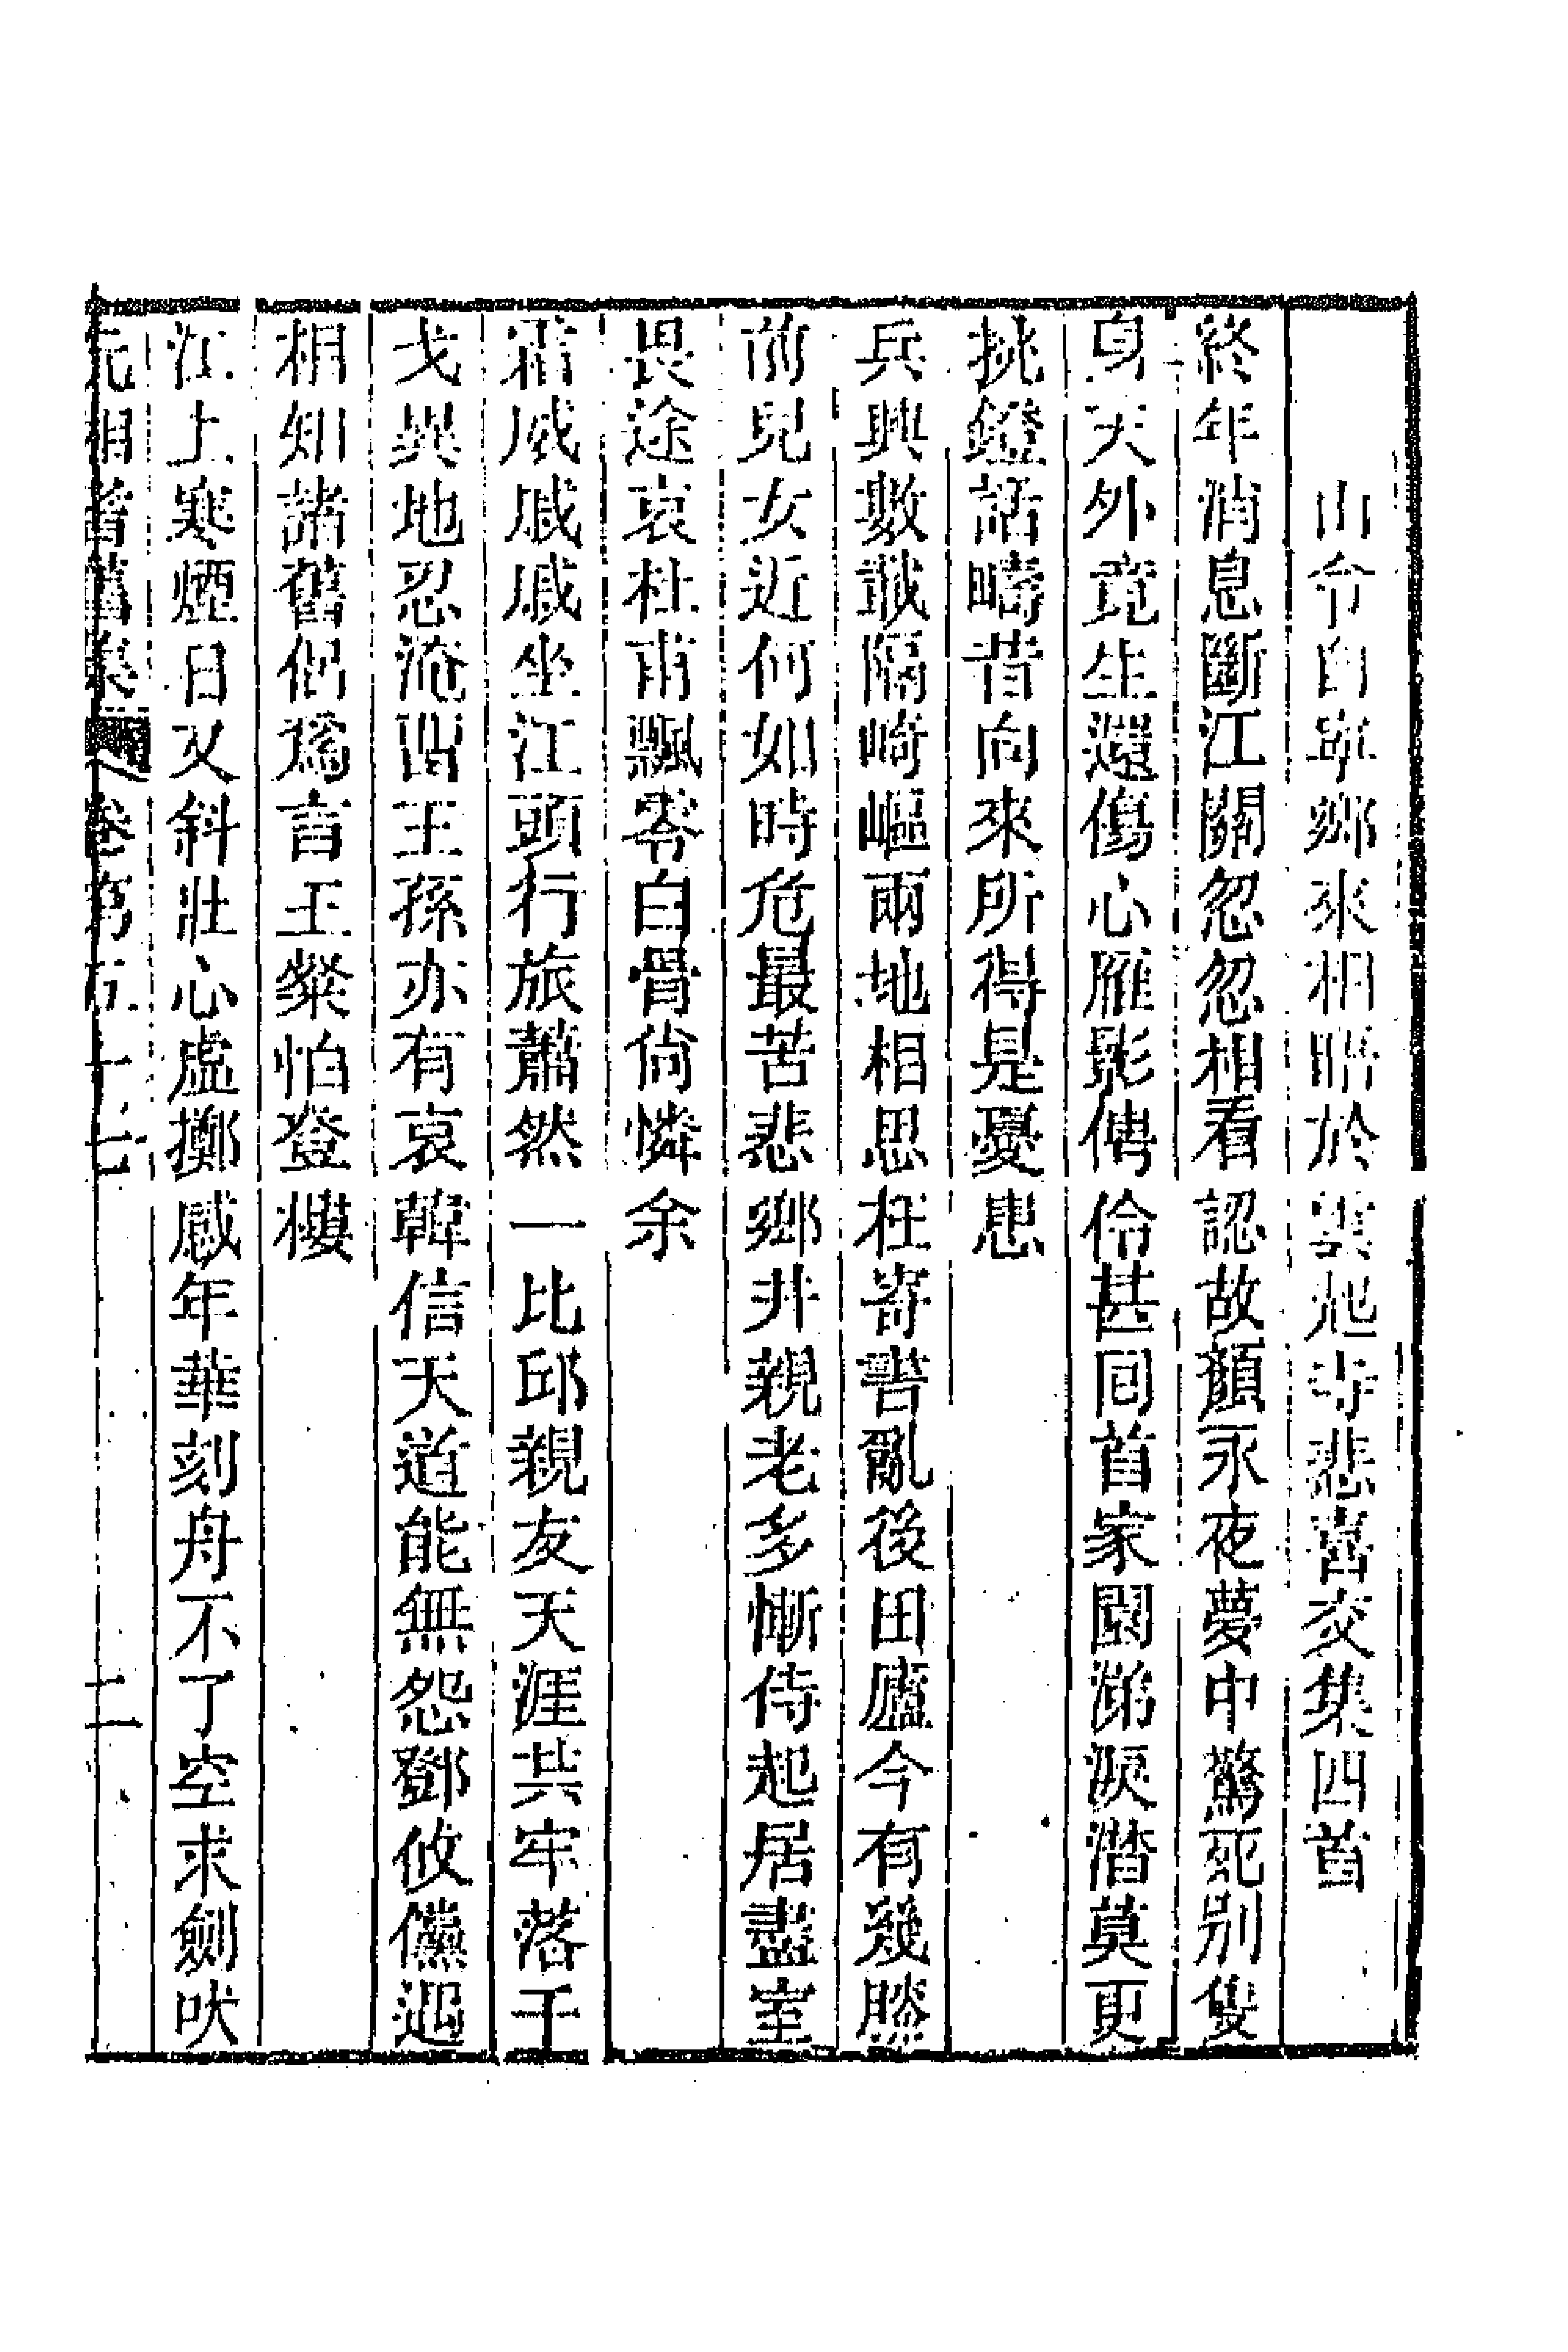 山令自寧鄉來相晤於雲起寺悲喜交集四首
終年消息斷江關忽忽相看認故顏永夜夢中驚死别隻
身天外竟生還傷心雁影俜伶甚回首家園涕淚潛莫更
挑鐙話疇昔向來所得是憂患
兵興數載隔崎嶇兩地相思枉寄書亂後田廬今有幾膝
前兒女近何如時危最苦悲鄉井親老多慚侍起居盡室
畏途哀杜甫飄零白骨尚憐余
霜威戚戚坐江頭行旅蕭然一比邱親友天涯共牢落干
戈異地忍淹留王孫亦有哀韓信天道能無怨鄧攸儻遇
相知諸舊侶爲言王粲怕登樓
江上寒煙日又斜壯心虛擲感年華刻舟不了空求劍吠
沅湘耆舊集 卷第五十七 二